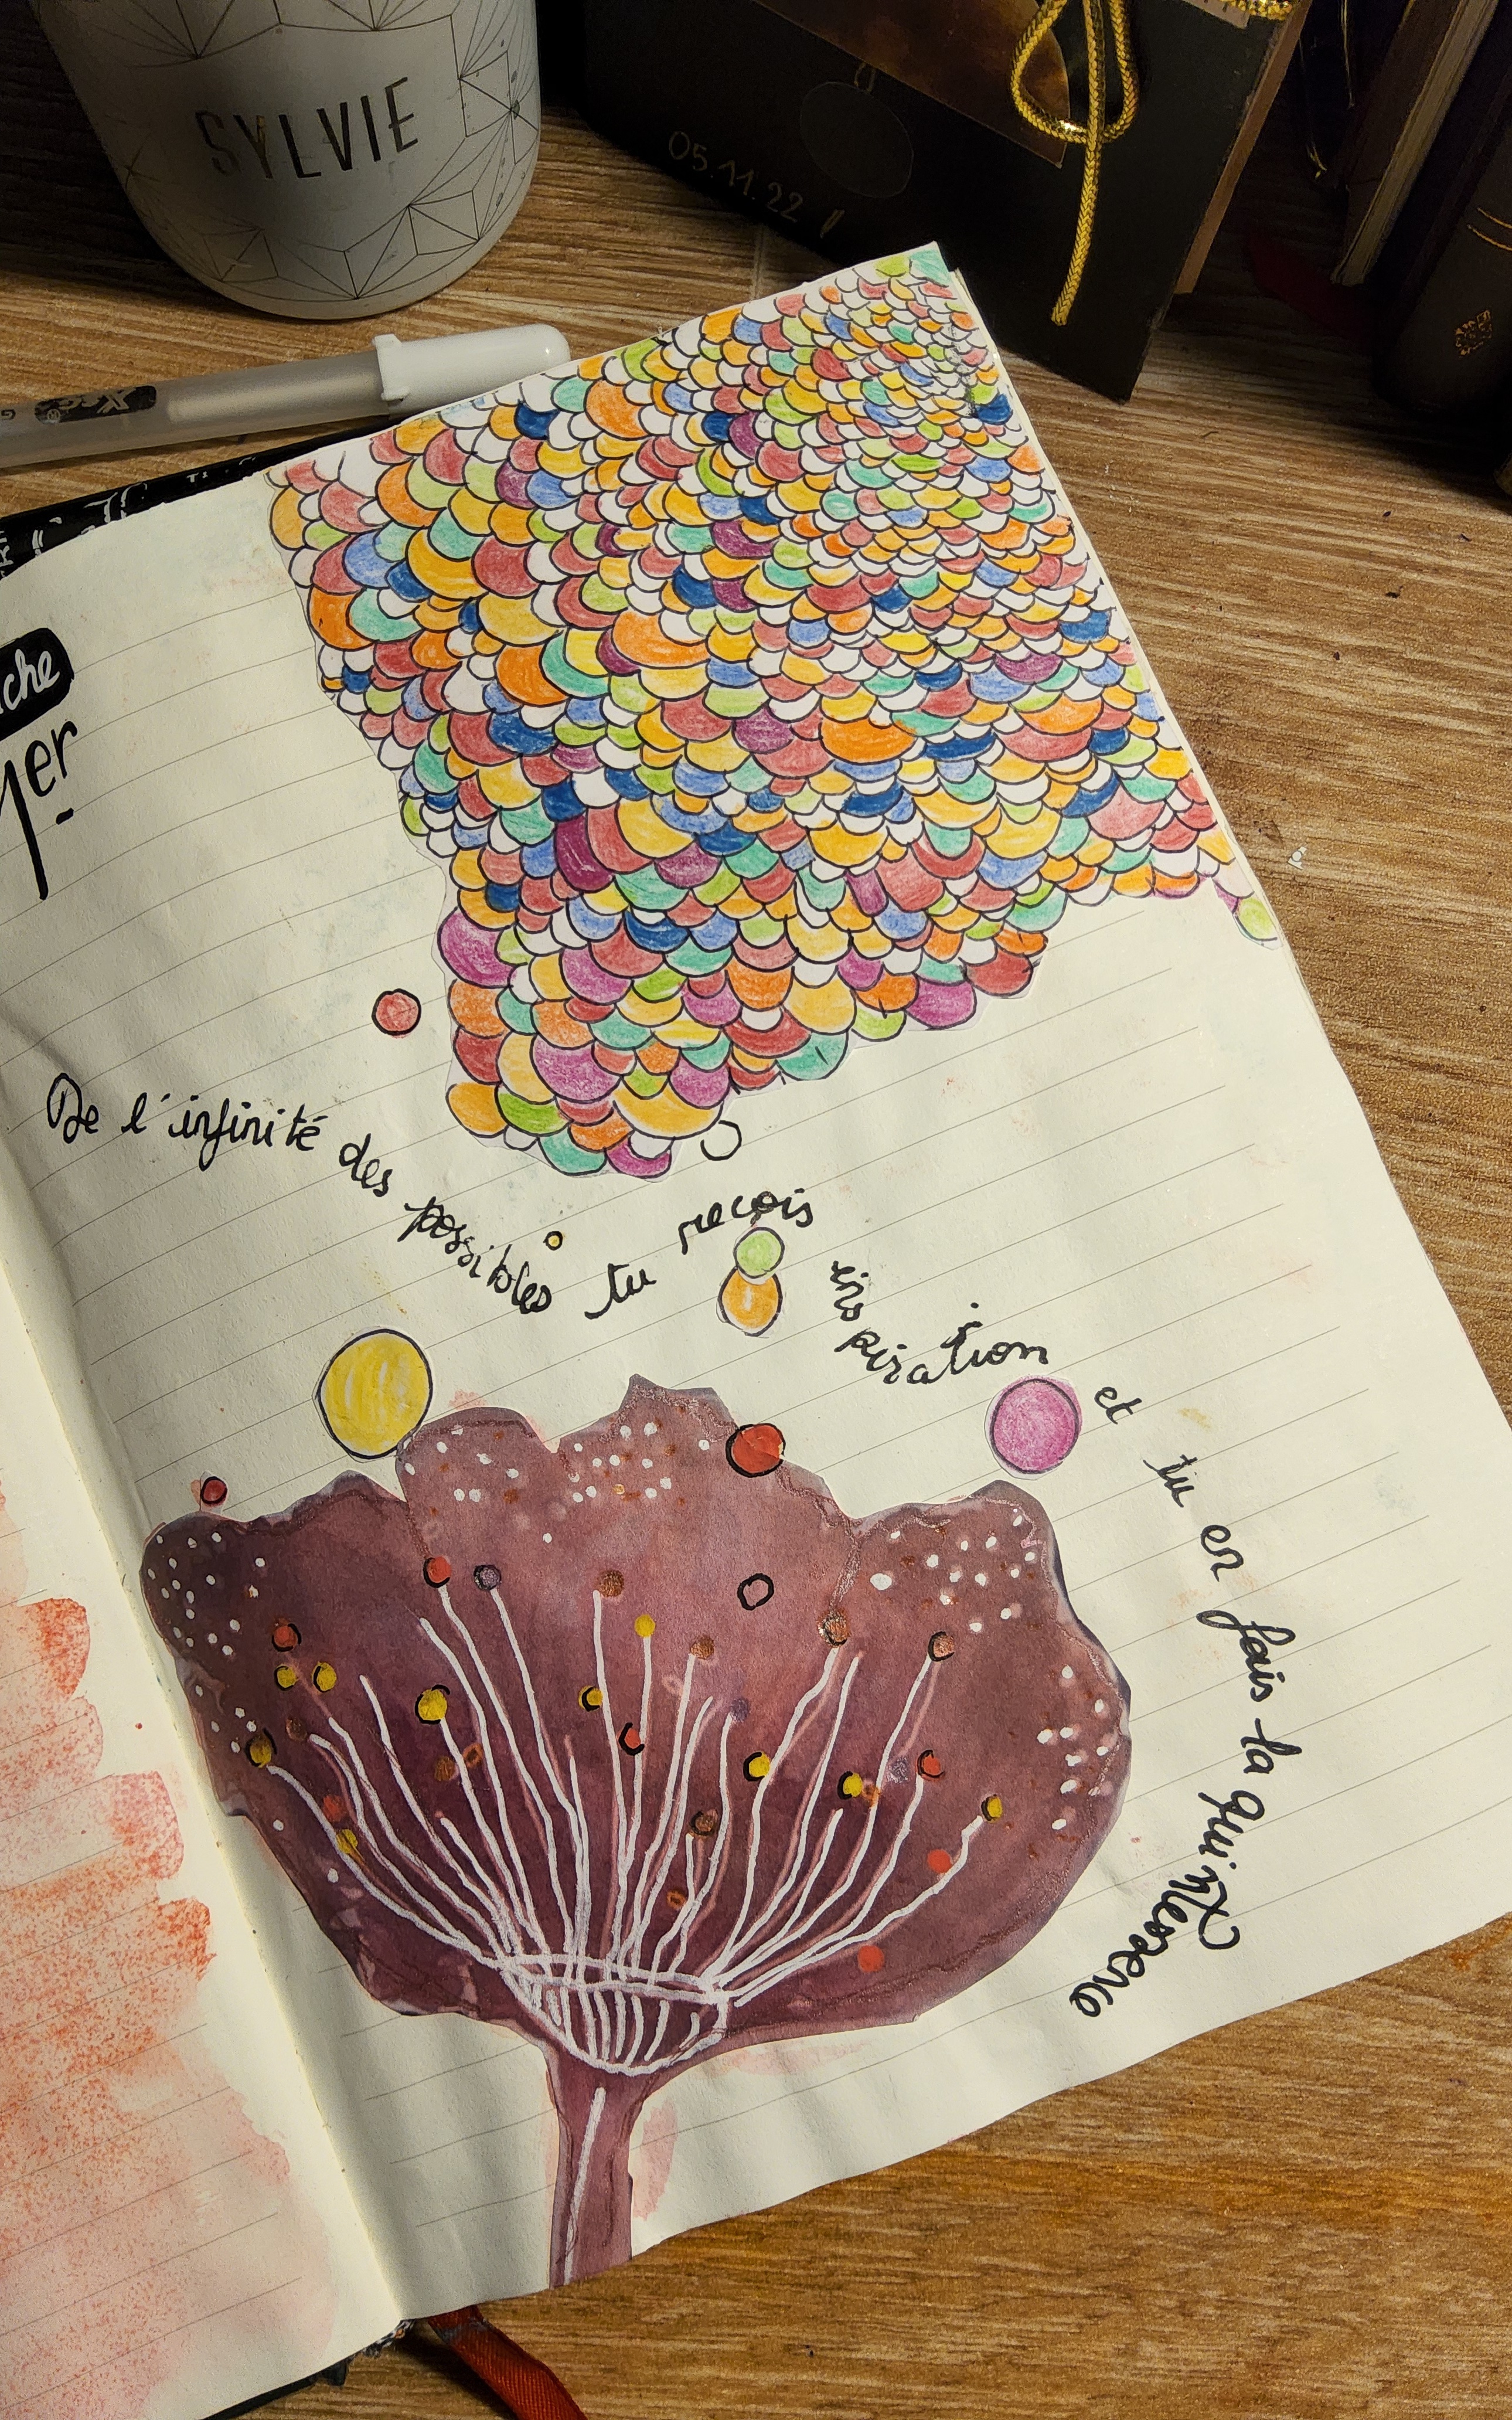 SYLVIE
05.11.22
che
1er
De l'infinité des possibles tu reçois inspiration et tu en fais la quintessence